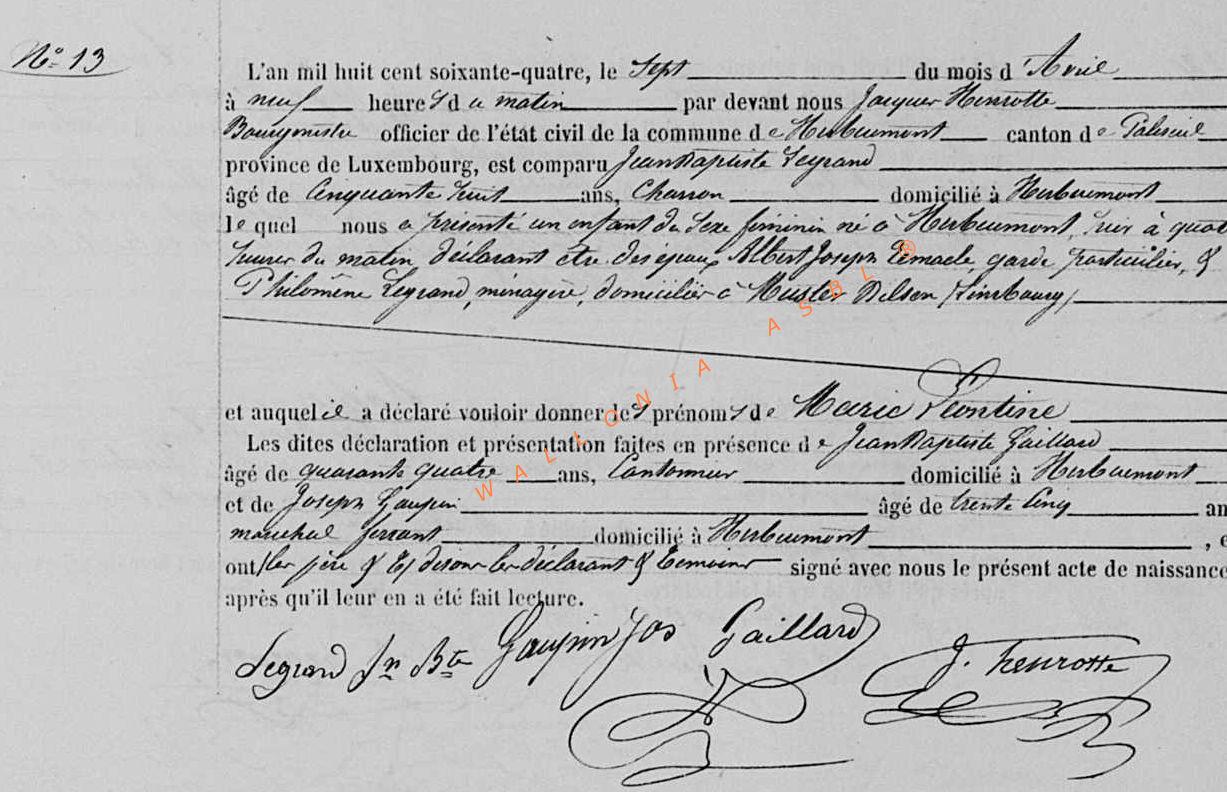 N° 13
L'an mil huit cent soixante-quatre, le Sept du mois d'Avril
à neuf heures du matin par devant nous Jacques Henrotte
Bourgmestre officier de l'état civil de la commune de Herbeumont canton de Paliseul
province de Luxembourg, est comparu Jean Baptiste Legrand
âgé de Cinquante huit ans, Charron domicilié à Herbeumont
lequel nous a présenté un enfant du Sexe féminin né à Herbeumont, hier à quat
heures du matin, déclarant être des époux Albert Joseph Lemacle, garde particulier, &
Philomène Legrand, ménagère, domiciliés à Dilsen (Limbourg)
et auquel il a déclaré vouloir donner les prénoms de Marie Léontine
Les dites déclaration et présentation faites en présence de Jean Baptiste Gaillard
âgé de quarante quatre ans, Cantonnier domicilié à Herbeumont
et de Joseph Goupin âgé de trente cinq an
maréchal ferrant domicilié à Herbeumont , e
ont (les père & Es) disons les déclarant & témoins signé avec nous le présent acte de naissance
après qu'il leur en a été fait lecture.
Legrand Jn Bte Goupin Jos Gaillard J. henrotte
WALLONIA ASBL ®